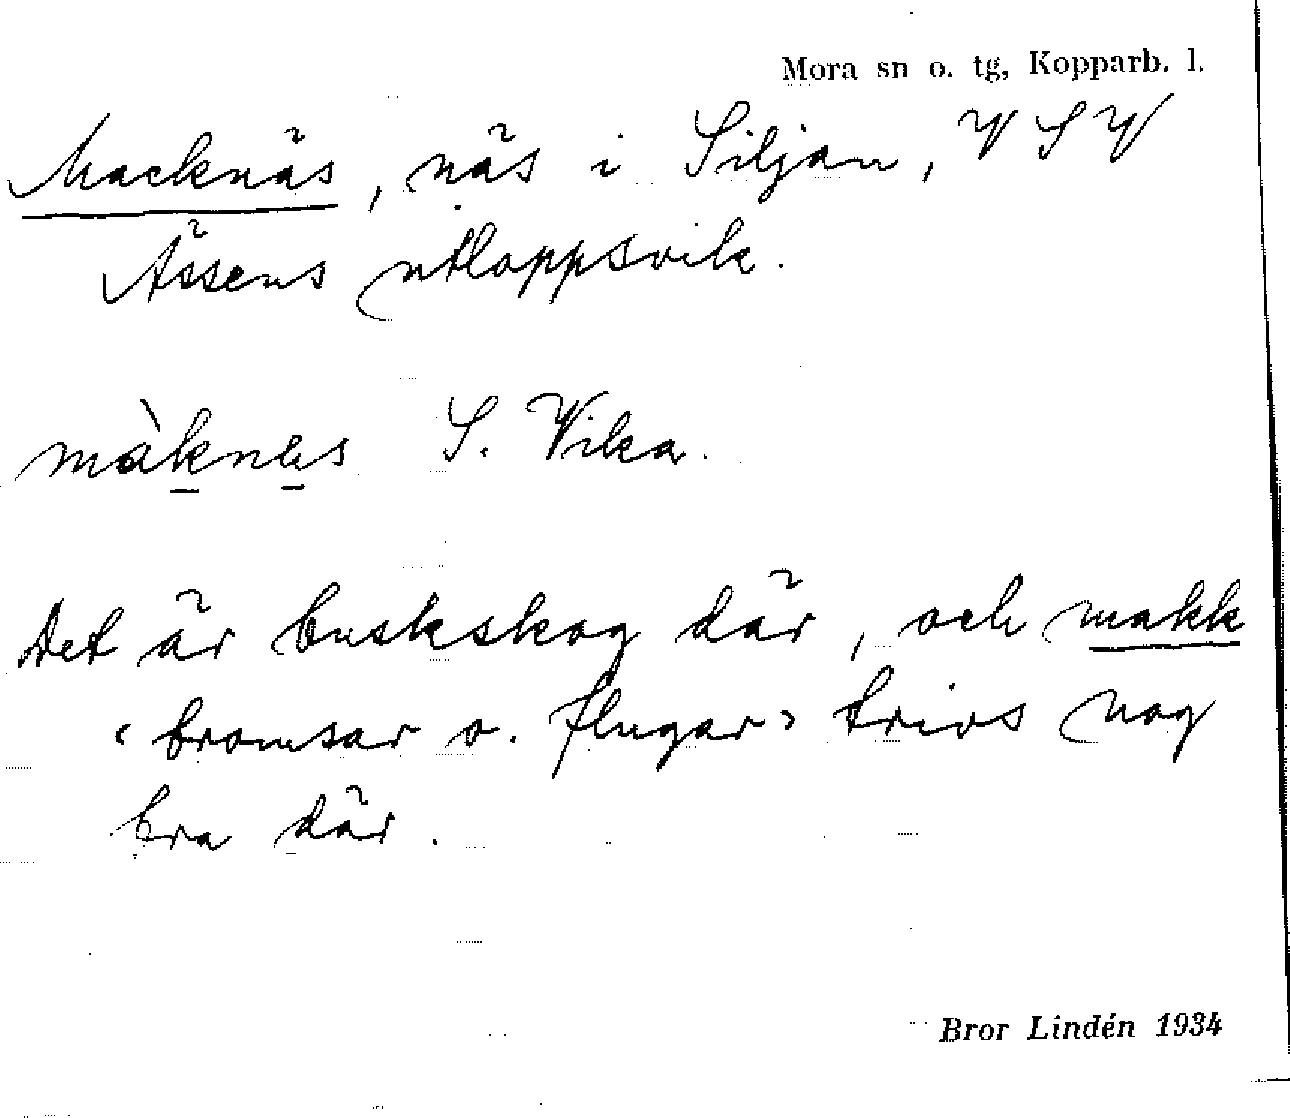 Mora sn o. tg, Kopparb. l.
Macknäs, näs i Siljan, VSV
Ässens utloppsvik.
màknäs S. Vika.
Det är buskskog där, och makk
‹bromsar o. flugar› trivs nog
bra där.
Bror Lindén 1934